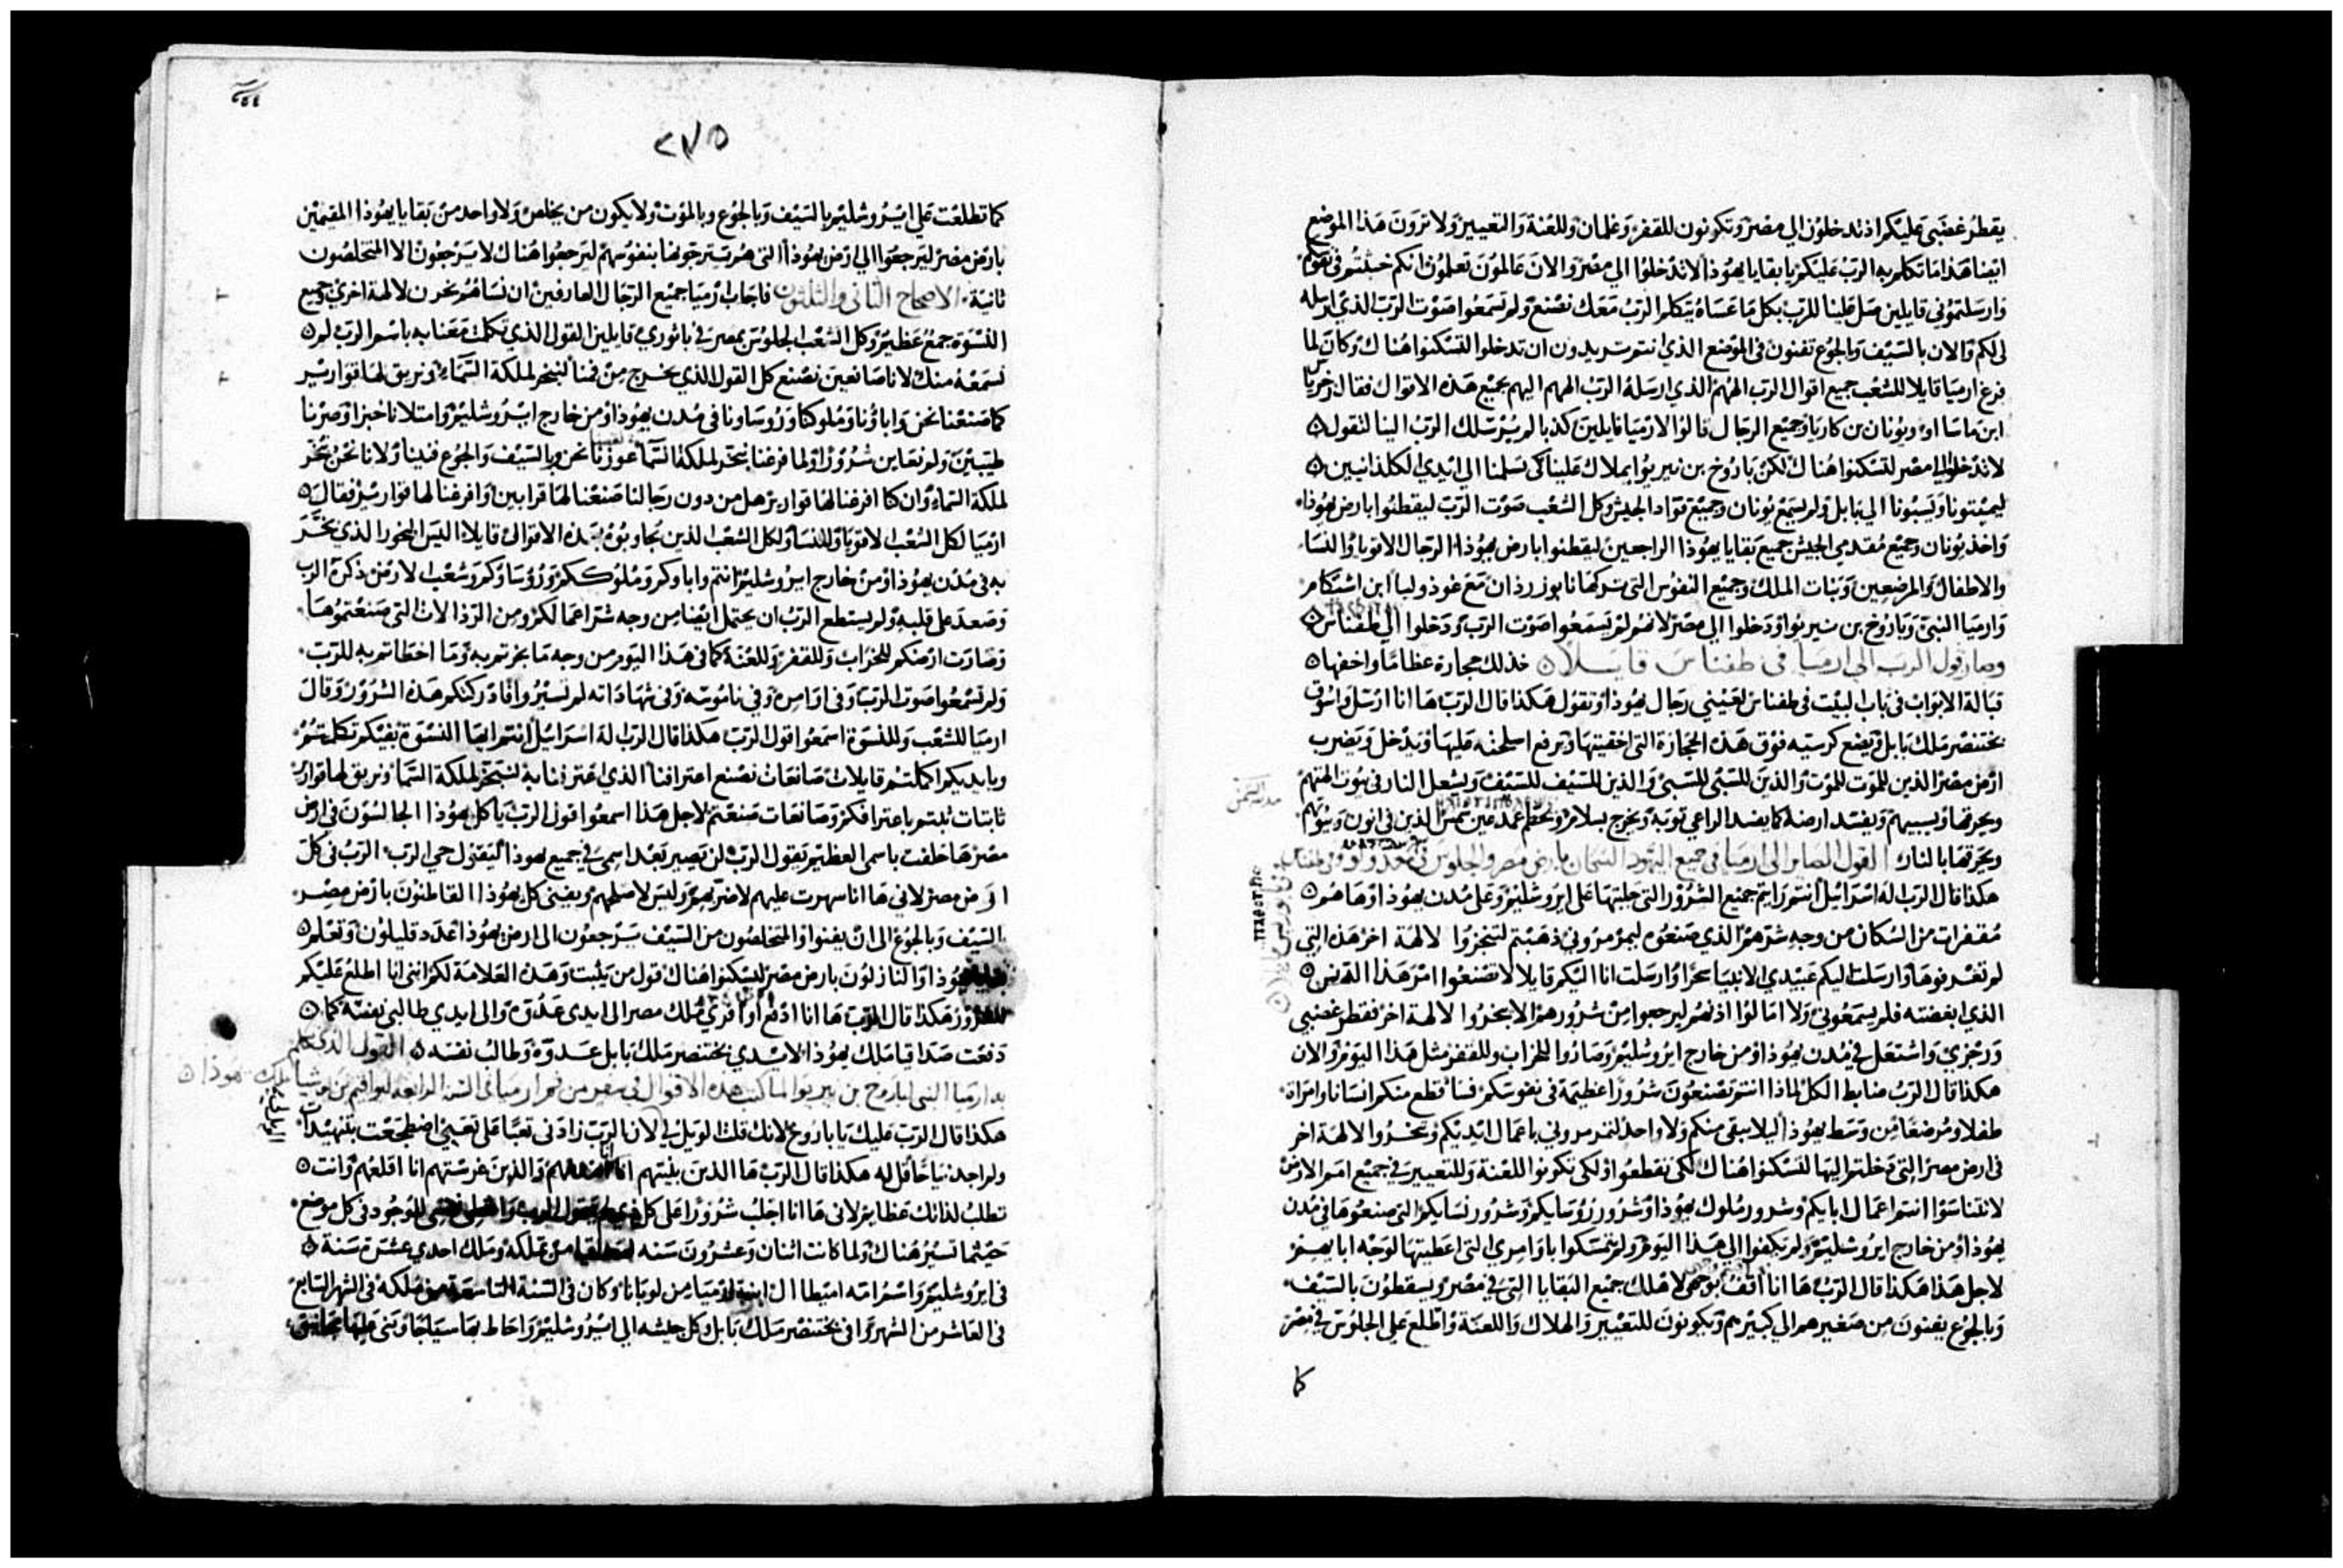 يقطر غضبي عليكم اذ تدخلون الي مصر وتكونون للقفر وغلمان وللعنة والتعيير ولا ترون هذا الموضع
ايضا هذا ما تكلم به الرب عليكم يا بقايا يهوذا لا تدخلوا الي مصر والان عالمون تعلمون انكم خبثتم في نفوسكم
وارسلتموني قايلين صل علينا للرب بكل ما عساه يتكلم الرب معك نصنع ولم تسمعوا صوت الرب الذي ارسله
لي لكم والان بالسيف وبالجوع تفنون في الموضع الذي انتم تريدون ان تدخلوا لتسكنوا هناك وكان لما
فرغ ارميا قايلا للشعب جميع اقوال الرب الههم الذي ارسله الرب الههم اليهم بجميع هذه الاقوال فقال زخريا
ابن ماساا او ويونان بن كاريا وجميع الرجال قالوا لارميا قايلين كذبا لم يرسلك الرب الينا لتقول
لا تدخلوا الي مصر لتسكنوا هناك لكن باروخ بن نيريوا يملاك علينا كي تسلمنا الي ايدي الكلدانيين
ليميتونا ويسبونا الي بابل ولم يسمع يونان وجميع قواد الجيش وكل الشعب صوت الرب ليقطنوا بارض يهوذا
واخذ يونان وجميع مقدمي الجيش جميع بقايا يهوذا الراجعين ليقطنوا بارض يهوذا الرجال الاقويا والنسا
والاطفال والمرضعين وبنات الملك وجميع النفوس التي تركها نابوزردان مع غودوليا ابن اشتكام
وارميا النبي وباروخ بن نيريوا ودخلوا الي مصر لانهم لم يسمعوا صوت الرب ودخلوا الي طفناس
وصار قول الرب الي ارميا في طفناس قايلا خذ لك حجارة عظاما واخفها
قبالة الابواب في باب البيت في طفناس لعيني رجال يهوذا وتقول هكذا قال الرب ها انا ارسل واسوق
بختنصر ملك بابل ويضع كرسيه فوق هذه الحجارة التي اخفيتها ويرفع اسلحته عليها ويدخل ويضرب
ارض مصر الذين للموت للموت والذين للسبي للسبي والذين للسيف للسيف ويشعل النار في بيوت الهتهم
ويحرقها ويسبيهم ويفسد ارضه كما يفسد الراعي ثوبه ويخرج بسلام ويحطم عمد عين شمس الذين في انون وبيوتهم
ويحرقها بالنار القول الصاير الي ارميا في جميع اليهود السكان بارض مصر والجلوس في مجدولوا وفي طفناس
هكذا قال الرب اله اسرائيل انتم رايتم جميع الشرور التي جلبتها علي ايروشليم وعلي مدن يهوذا وها هم
مقفرات من السكان من وجه شرهم الذي صنعوه ليمرمروني ذهبتم لتبخروا لالهة اخر هذه التي
لم تعرفوها وارسلت اليكم عبيدي الانبيا سحرا وارسلت انا اليكم قايلا لا تصنعوا امر هذا الدنس
الذي ابغضته فلم يسمعوني ولا امالوا اذنهم ليرجعوا من شرورهم الا يبخروا لالهة اخر فقطر غضبي
ورجزي واشتعل في مدن يهوذا ومن خارج ايروشليم وصاروا للخراب وللقفر مثل هذا اليوم والان
هكذا قال الرب ضابط الكل لماذا انتم تصنعون شرورا عظيمة في نفوسكم فساقطع منكم انسانا وامراة
طفلا ومرضعا من وسط يهوذا ليلا يبقي منكم ولا واحد لتمرمروني باعمال ايديكم وتبخروا لالهة اخر
في ارض مصر التي دخلتم اليها لتسكنوا هناك لكي تقطعوا ولكي تكونوا للعنة وللتعيير في جميع امم الارض
لا تتناسوا انتم اعمال ابايكم وشرور ملوك يهوذا وشرور رؤسايكم وشرور نسايكم التي صنعوها في مدن
يهوذا ومن خارج ايروشليم ولم يكفوا الي هذا اليوم ولم يتمسكوا باوامري التي اعطيتها لوجه ابايهم
لاجل هذا هكذا قال الرب ها انا اقف بوجهي لاهلك جميع البقايا التي في مصر ويسقطون بالسيف
وبالجوع يفنون من صغيرهم الي كبيرهم ويكونون للتعيير والهلاك واللعنة واطلع علي الجلوس في مصر
كما
مدينة الشمس
٢٧٥
كما تطلعت علي ايروشليم بالسيف وبالجوع وبالموت ولا يكون من يخلص ولا واحد من بقايا يهوذا المقيمين
بارض مصر ليرجعوا الي ارض يهوذا التي هم يترجونها بنفوسهم ليرجعوا هناك لا يرجعون الا المتخلصون
ثانية الاصحاح الثاني والثلثون فاجاب ارميا جميع الرجال العارفين ان نساهم يبخرن لالهة اخري وجميع
النسوة جمع عظيم وكل الشعب الجلوس بمصر في باثوري قايلين القول الذي تكلمت معنا به باسم الرب لم
نسمعه منك لانا صانعين نصنع كل القول الذي يخرج من فمنا لنبخر لملكة السماء ونريق لها قوارير
كما صنعنا نحن واباؤنا وملوكنا ورؤساونا في مدن يهوذا ومن خارج ايروشليم وامتلانا خبزا وصرنا
طيبين ولم نعاين شرورا ولما فرغنا نبخر لملكة السما عوزنا نحن وبالسيف والجوع فنينا ولانا نحن نبخر
لملكة السماء وان كنا افرغنا لها قوارير هل من دون رجالنا صنعنا لها قرابين وافرغنا لها قوارير فقال
ارميا لكل الشعب الاقويا وللنسا ولكل الشعب الذين جاوبوه بهذه الاقوال قايلا اليس البخور الذي بخرتم
به في مدن يهوذا ومن خارج ايروشليم انتم واباوكم وملوككم ورؤساوكم وشعب الارض ذكره الرب
وصعد علي قلبه ولم يستطع الرب ان يحتمل ايضا من وجه شر اعمالكم ومن الرذالات التي صنعتموها
وصارت ارضكم للخراب وللقفر وللعنة كما في هذا اليوم من وجه ما بخرتم به وما اخطاتم به للرب
ولم تسمعوا صوت الرب وفي اوامره وفي ناموسه وفي شهاداته لم تسيروا فادركتكم هذه الشرور وقال
ارميا للشعب وللنسوة اسمعوا قول الرب هكذا قال الرب اله اسرائيل انتم ايها النسوة بفيكم تكلمتم
وبايديكم اكملتم قايلات صانعات نصنع اعترافنا الذي اعترفنا به لنبخر لملكة السما ونريق لها قوارير
ثابتات ثبتم باعترافكم وصانعات صنعتم لاجل هذا اسمعوا قول الرب يا كل يهوذا الجالسون في ارض
مصر ها حلفت باسمي العظيم يقول الرب لن يصير بعد اسمي في جميع يهوذا ليقول حي الرب الرب في كل
ارض مصر لاني ها انا سهرت عليهم لاضر بهم وليس لاصلحهم ويفني كل يهوذا القاطنون بارض مصر
بالسيف وبالجوع الي ان يفنوا والمتخلصون من السيف يرجعون الي ارض يهوذا عدد قليلون وتعلم
يهوذا والنازلون بارض مصر ليسكنوا هناك قول من يثبت وهذه العلامة لكم انني انا اطلع عليكم
للشرور هكذا قال الرب ها انا ادفع اوافري ملك مصر الي ايدي عدوه والي ايدي طالبي نفسه كما
دفعت صداقيا ملك يهوذا لايدي بختنصر ملك بابل عدوه وطالب نفسه القول الذي تكلم
به ارميا النبي لباروخ بن نيريوا لما كتب هذه الاقوال في سفر من فم ارميا في السنة الرابعة ليواقيم بن يوشيا ملك يهوذا
هكذا قال الرب عليك يا باروخ لانك قلت الويل لي لان الرب زادني تعبا علي تعبي اضطجعت بتنهيدات
ولم اجد نياحا قل له هكذا قال الرب ها الذين بنيتهم انا اهدمهم والذين غرستهم انا اقلعهم وانت
تطلب لذاتك عظايم لاني ها انا اجلب شرورا علي كل ذي جسد يقول الرب الموجود في كل موضع
حيثما تسير هناك ولما كانت اثنان وعشرون سنه من تملكه وملك احدي عشرة سنة
في ايروشليم واسم امه اميطاال ابنة ارميا من لوبانا وكان في السنة التاسعة من ملكه في الشهر التاسع
في العاشر من الشهر وافي بختنصر ملك بابل وكل جيشه الي ايروشليم واحاط بها سياجا وبني عليها